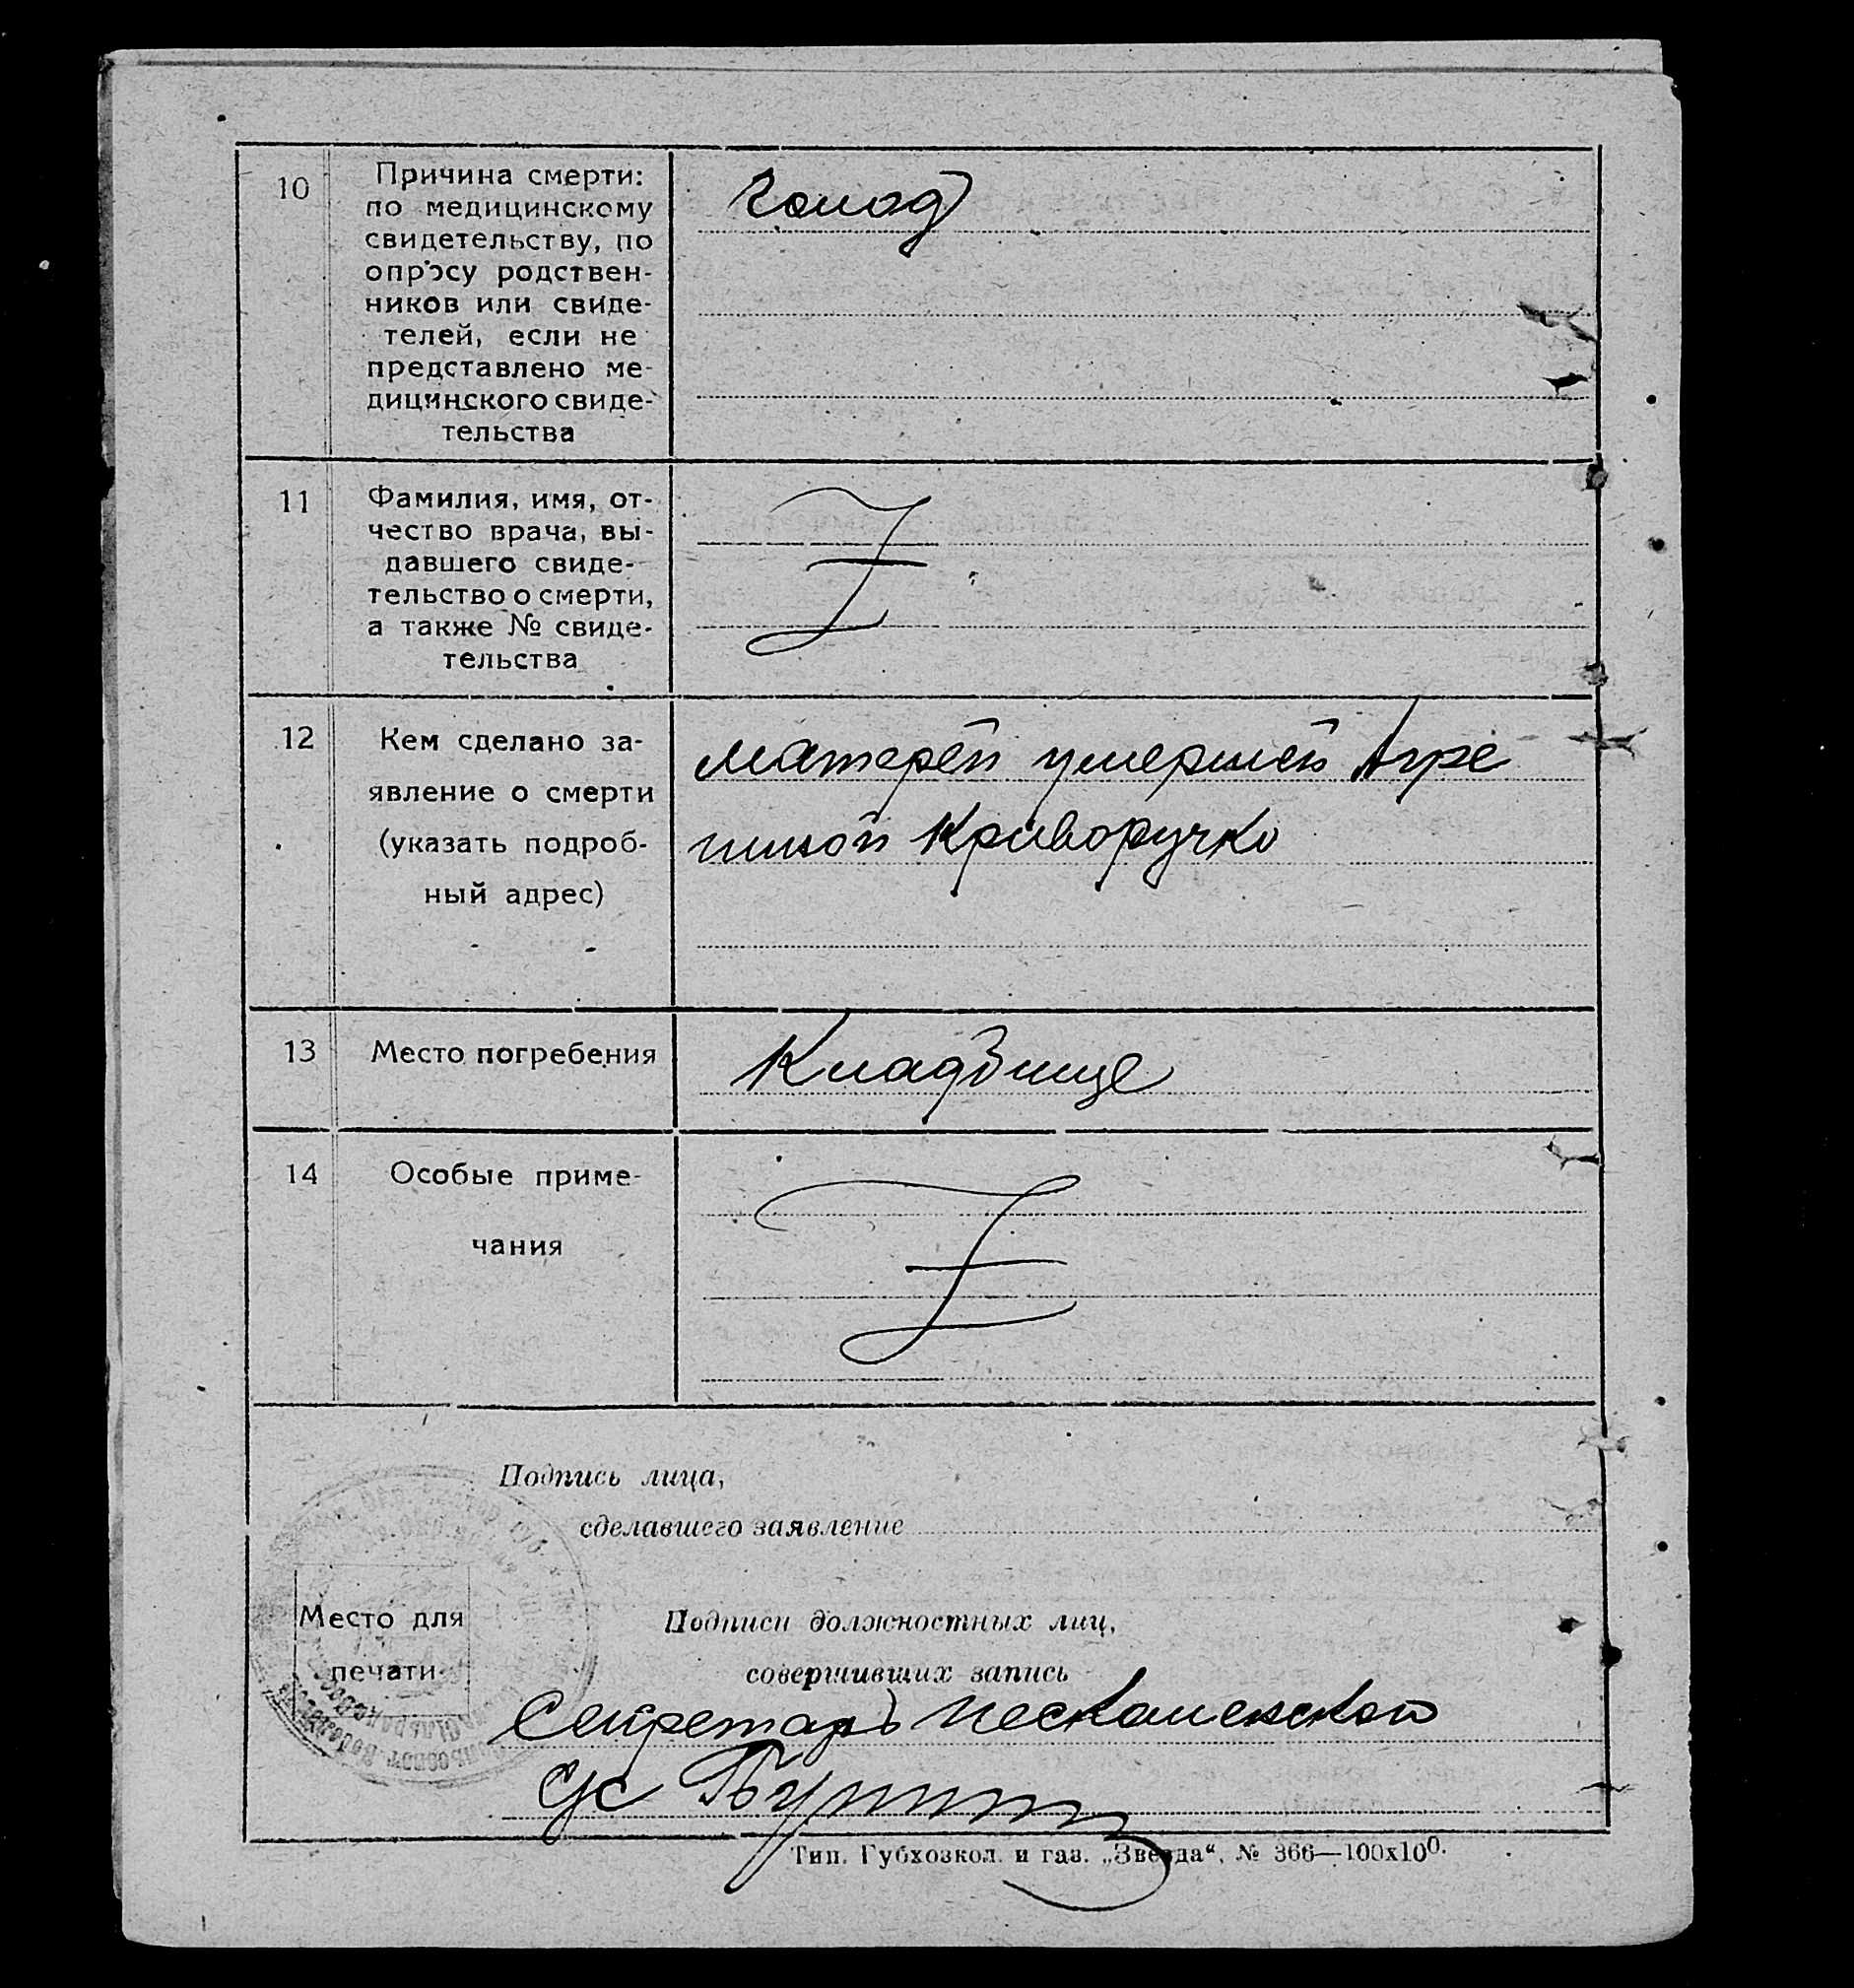 10
Причина смерти:
по медицинскому
свидетельству, по
опросу родствен-
ников или свиде-
телей, если не
представлено ме-
дицинского свиде-
тельства
голод
11
Фамилия, имя, от-
чество врача, вы-
давшего свиде-
тельство о смерти,
а также № свиде-
тельства
12
Кем сделано за-
явление о смерти
(указать подроб-
ный адрес)
матерей умершей Агре
пиной Криворучко
13
Место погребения
Кладбище
14
Особые приме-
чания
Подпись лица,
сделавшего заявление
Место для
печати
Подписи должностных лиц,
совершивших запись
Секретарь
с/с
Тип. Губхозкол. и газ. „Звезда“, № 366—100х100.